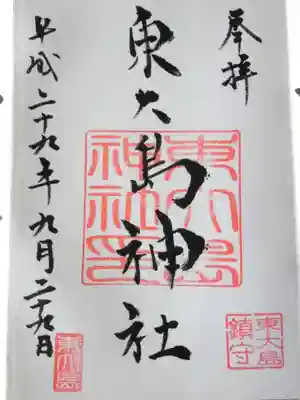 奉拝
東大島神社
平成二十九年九月二十九日
東大島神社印
東大島
鎮守
東大島